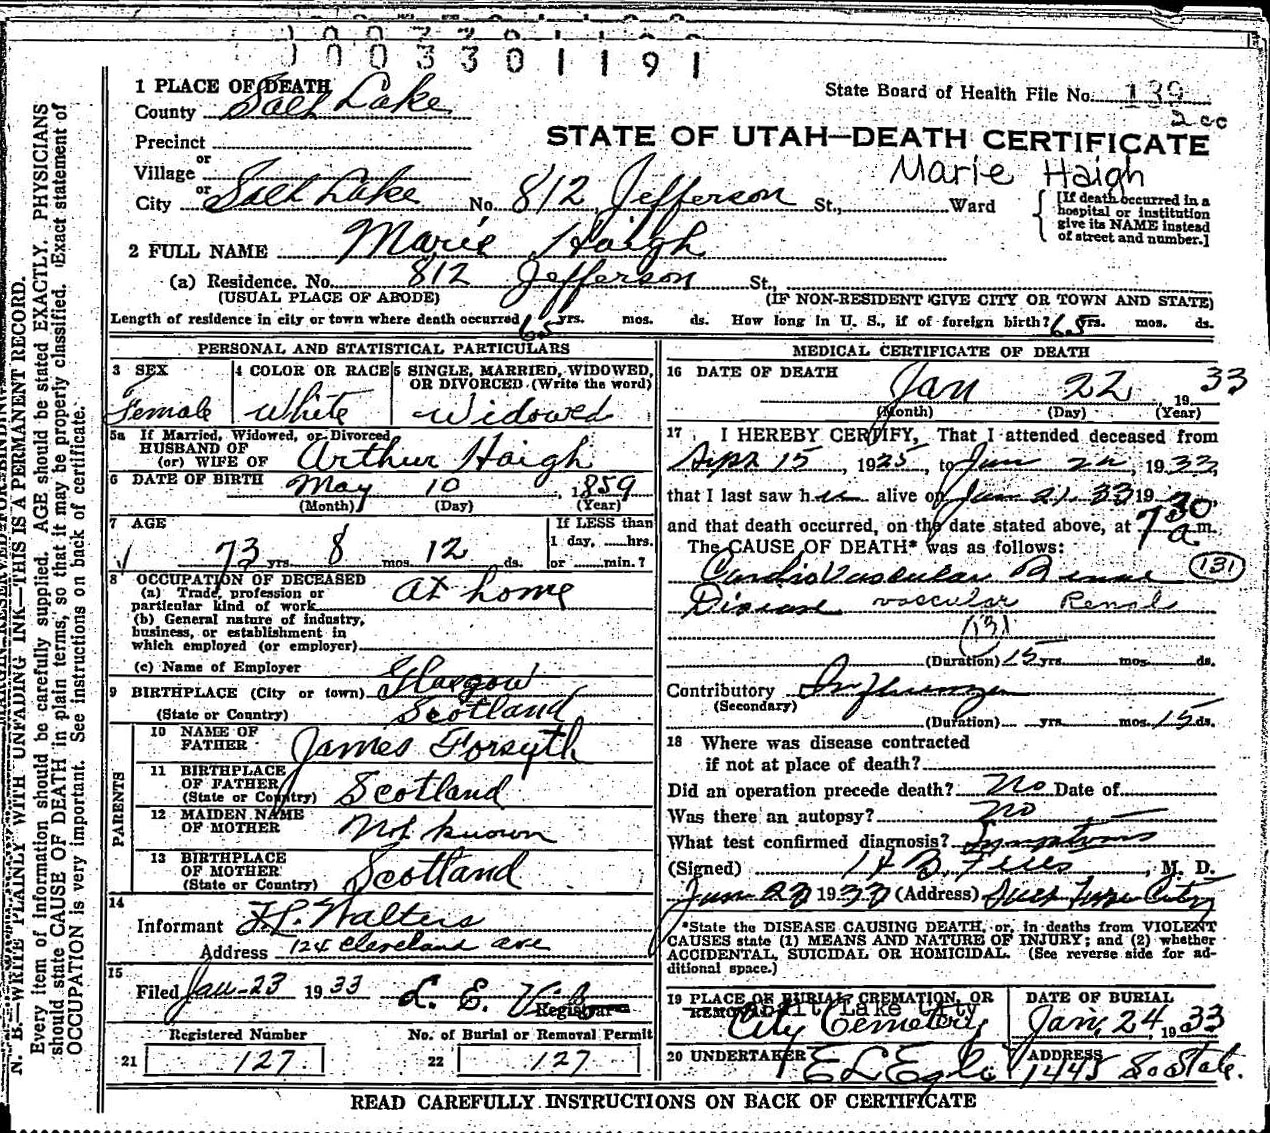 1003301191
1 PLACE OF DEATH
County Salt Lake
State Board of Health File No. 139
2cc
Precinct
or
Village
or
City Salt Lake No. 812 Jefferson St., Ward
STATE OF UTAH—DEATH CERTIFICATE
Marie Haigh
[If death occurred in a
hospital or institution
give its NAME instead
of street and number.]
2 FULL NAME Marie Haigh
(a) Residence. No. 812 Jefferson St.,
(USUAL PLACE OF ABODE) (IF NON-RESIDENT GIVE CITY OR TOWN AND STATE)
Length of residence in city or town where death occurred 65 yrs. mos. ds. How long in U. S., if of foreign birth? 65 yrs. mos. ds.
PERSONAL AND STATISTICAL PARTICULARS
3 SEX
Female
4 COLOR OR RACE
White
5 SINGLE, MARRIED, WIDOWED,
OR DIVORCED (Write the word)
Widowed
5a If Married, Widowed, or Divorced
HUSBAND OF
(or) WIFE OF Arthur Haigh
6 DATE OF BIRTH May 10, 1859
(Month) (Day) (Year)
7 AGE
73 yrs. 8 mos. 12 ds.
If LESS than
1 day, ......hrs.
or ......min.?
8 OCCUPATION OF DECEASED
(a) Trade, profession or
particular kind of work at home
(b) General nature of industry,
business, or establishment in
which employed (or employer)
(c) Name of Employer
9 BIRTHPLACE (City or town) Glasgow
(State or Country) Scotland
PARENTS
10 NAME OF
FATHER James Forsyth
11 BIRTHPLACE
OF FATHER
(State or Country) Scotland
12 MAIDEN NAME
OF MOTHER Not known
13 BIRTHPLACE
OF MOTHER
(State or Country) Scotland
14
Informant Walters
Address 124 Cleveland ave
15
Filed Jan-23 1933 L. E.
Registrar
Registered Number
21 127
No. of Burial or Removal Permit
22 127
MEDICAL CERTIFICATE OF DEATH
16 DATE OF DEATH
Jan 22, 1933
(Month) (Day) (Year)
17 I HEREBY CERTIFY, That I attended deceased from
Sept 15, 1925, to Jan 22, 1933,
that I last saw her alive on Jan 21 33 19
and that death occurred, on the date stated above, at 7 30 a m.
The CAUSE OF DEATH* was as follows:
CardioVascular Renal (131)
Disease vascular Renal
(131)
(Duration) 15 yrs. mos. ds.
Contributory Influenza
(Secondary)
(Duration) yrs. mos. 15 ds.
18 Where was disease contracted
if not at place of death?
Did an operation precede death? No Date of
Was there an autopsy? No
What test confirmed diagnosis? Symptoms
(Signed) , M. D.
Jan 23 1933 (Address) Salt Lake City
*State the DISEASE CAUSING DEATH, or, in deaths from VIOLENT
CAUSES state (1) MEANS AND NATURE OF INJURY; and (2) whether
ACCIDENTAL, SUICIDAL OR HOMICIDAL. (See reverse side for ad-
ditional space.)
19 PLACE OF BURIAL, CREMATION, OR
REMOVAL Salt Lake City
City Cemetery
DATE OF BURIAL
Jan, 24, 1933
20 UNDERTAKER
ADDRESS
1445 So State.
READ CAREFULLY INSTRUCTIONS ON BACK OF CERTIFICATE
N. B.—WRITE PLAINLY WITH UNFADING INK—THIS IS A PERMANENT RECORD.
Every item of information should be carefully supplied. AGE should be stated EXACTLY. PHYSICIANS
should state CAUSE OF DEATH in plain terms, so that it may be properly classified. Exact statement of
OCCUPATION is very important. See instructions on back of certificate.